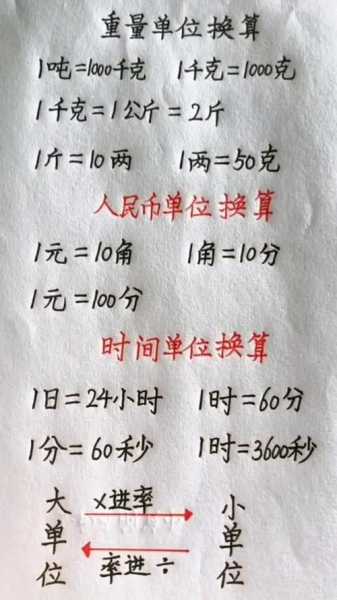 重量单位换算
1吨=1000千克 1千克=1000克
1千克=1公斤=2斤
1斤=10两 1两=50克
人民币单位换算
1元=10角 1角=10分
1元=100分
时间单位换算
1日=24小时 1时=60分
1分=60秒 1时=3600秒
大单位 ×进率 小单位
率进÷